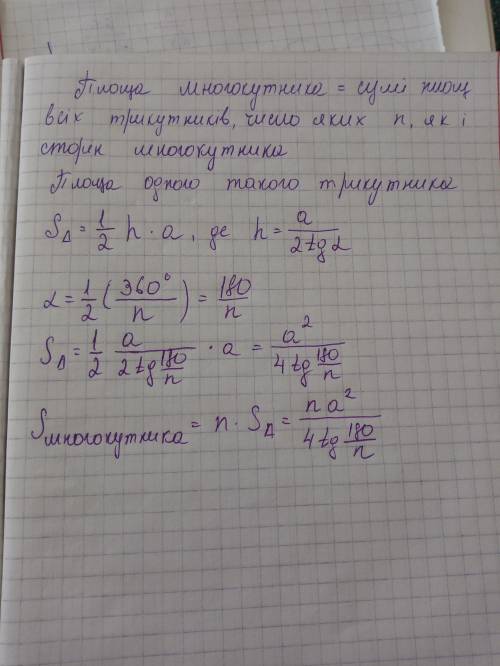 Площа многокутника = сумі площ
всіх трикутників, число яких n, як і
сторін многокутника
Площа одного такого трикутника
S_Δ = 1/2 h · a, де h = a/(2tg α)
α = 1/2 (360°/n) = 180/n
S_Δ = 1/2 a/(2tg 180/n) · a = a²/(4tg 180/n)
S_многокутника = n · S_Δ = na²/(4tg 180/n)